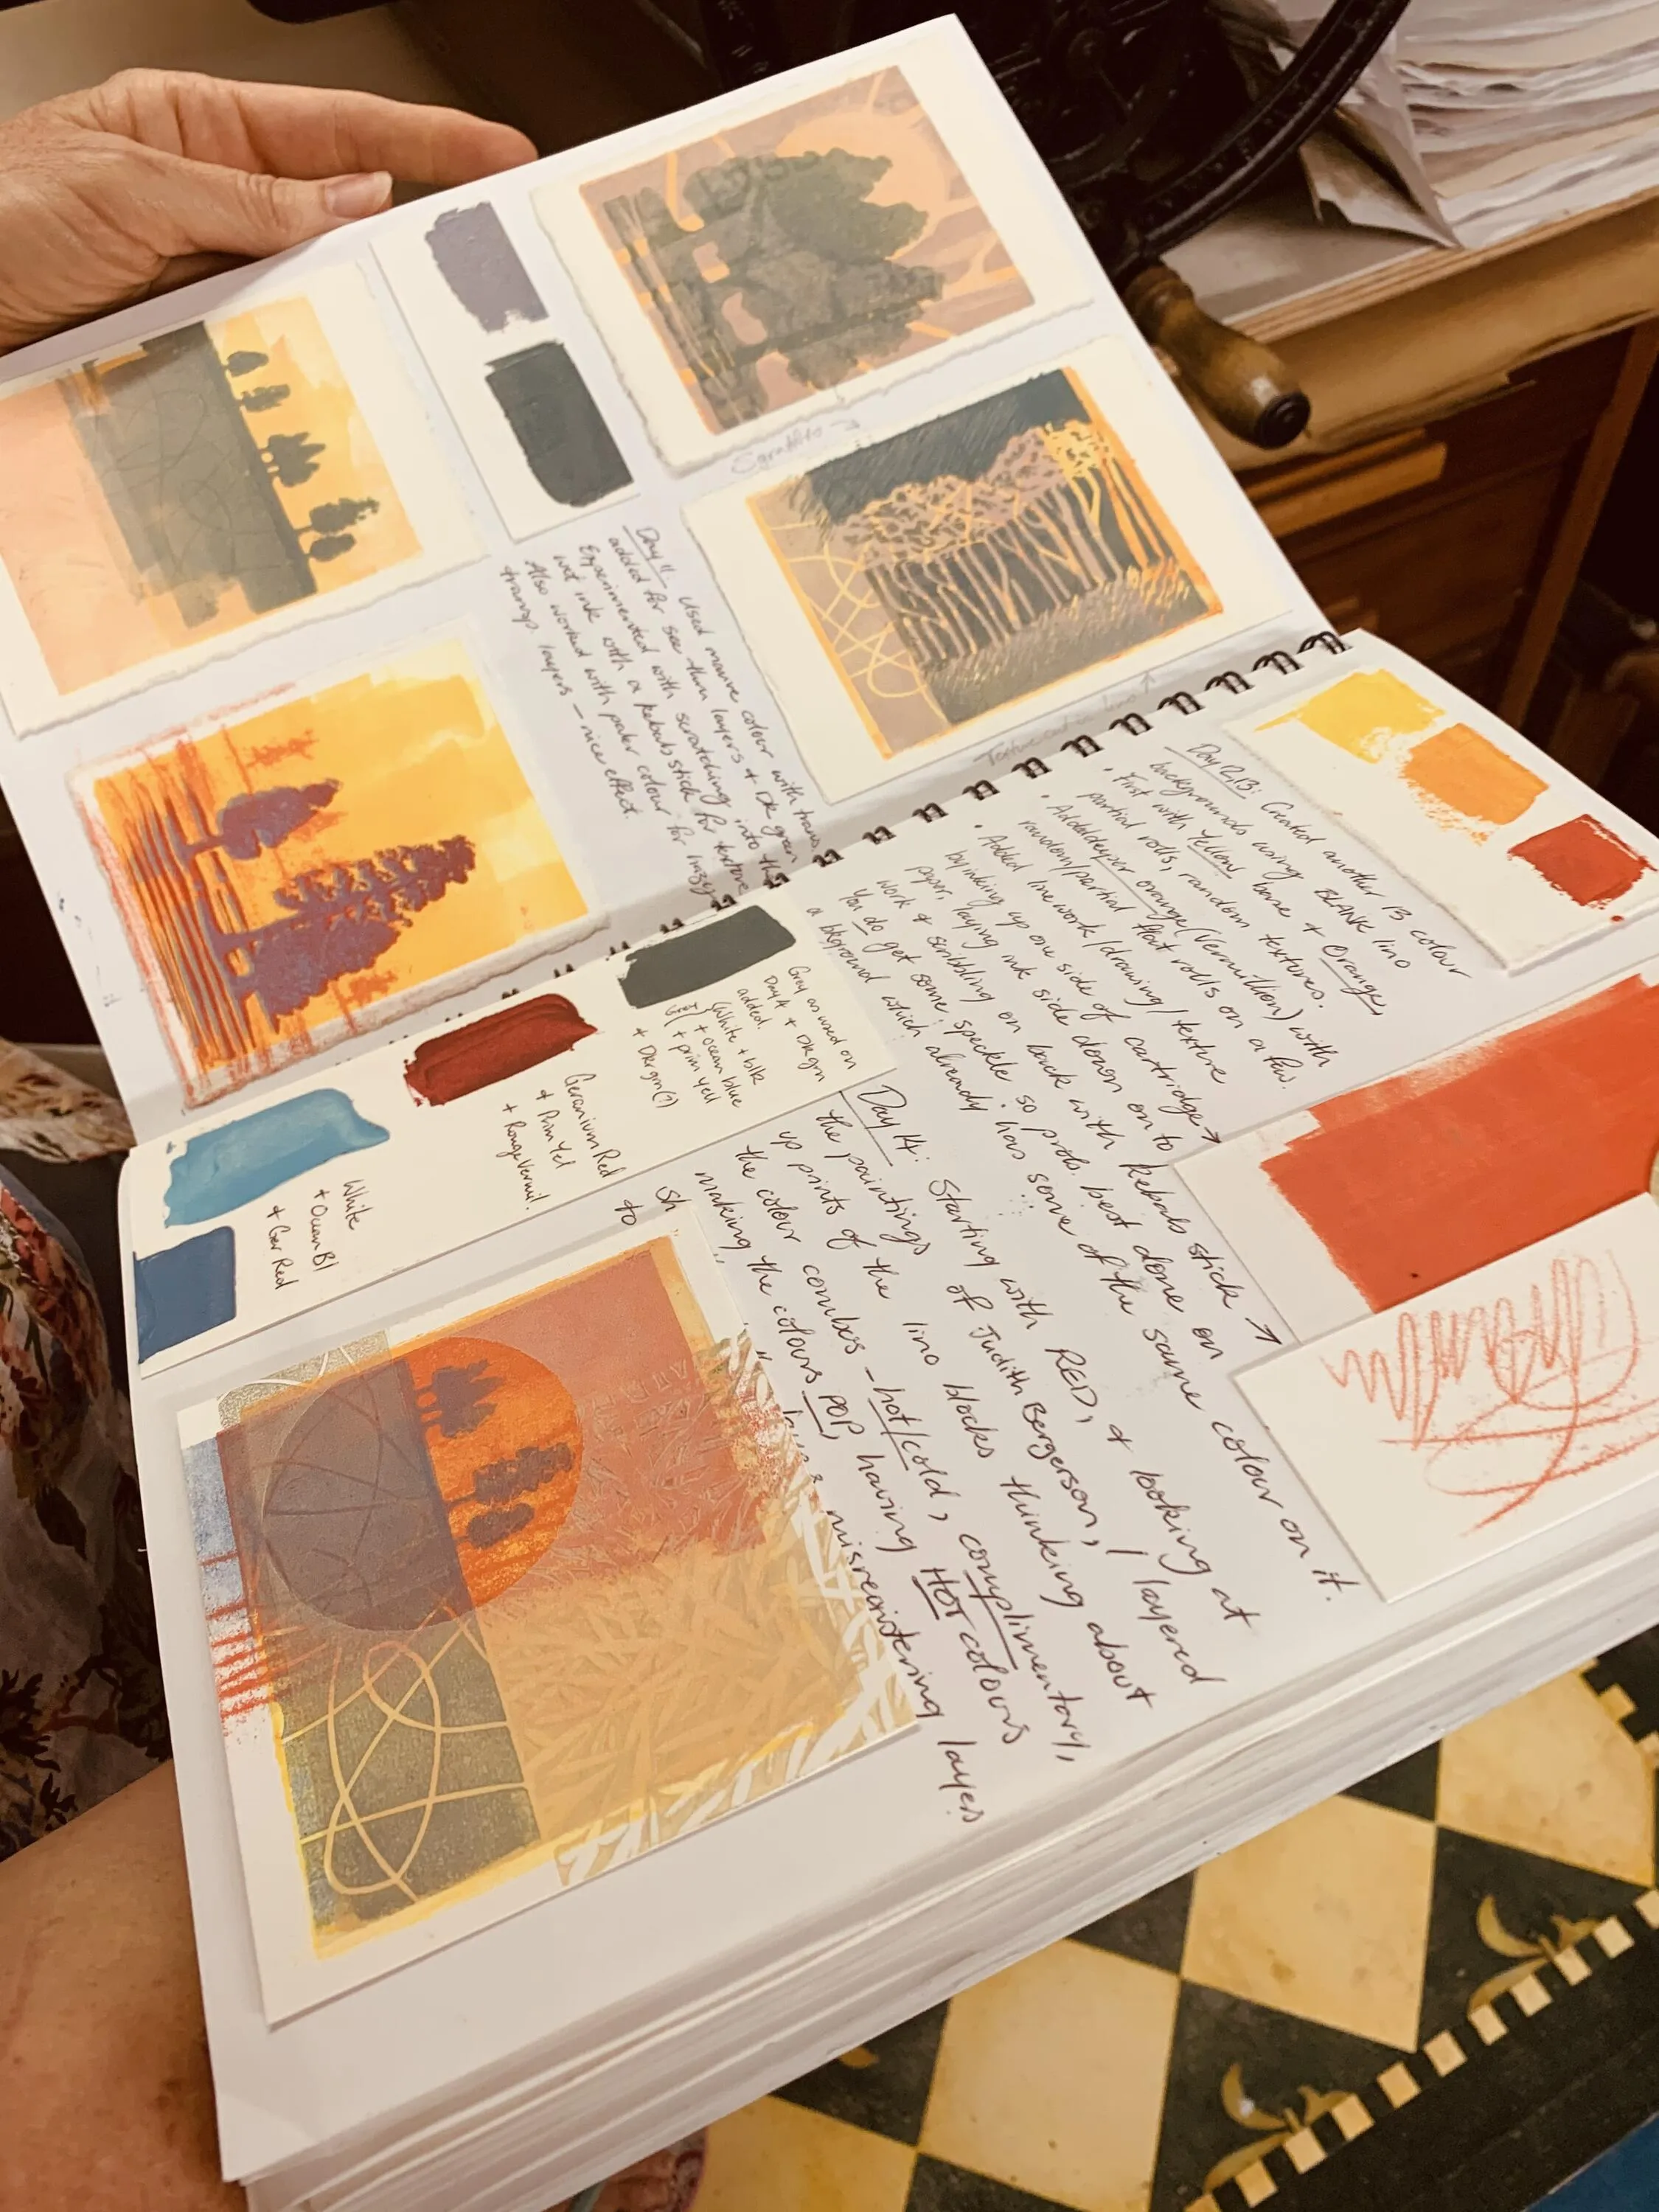 Day 11. Used mauve colour with trans.
added for see thru layers + DK green
Experimented with scratching into the
wet ink with a kebab stick for texture
Also worked with paler colour for hazy
transp. layers – nice effect.
Texture cut in lino ↑
Day 12, 13: Created another 13 colour
backgrounds using BLANK lino
• First with Yellow base + Orange,
partial rolls, random textures.
• Added deeper orange (Vermillion) with
random/partial flat rolls on a few.
• Added linework/drawing/texture
by inking up one side of cartridge →
paper, laying ink side down on to
work & scribbling on back with kebab stick ↗
You do get some speckle so prob. best done on
a bkground which already has some of the same colour on it.
Gray as used on
Day 4 + DK grn
added.
(White + blk
+ ocean blue
+ prim yell
+ DK grn (?)
Geranium Red
+ Prim Yel
+ Rouge Vermil.
White
+ Ocean Bl
+ Ger Red
Day 14: Starting with RED, & looking at
the paintings of Judith Bergerson, I layered
up prints of the lino blocks thinking about
the colour combos – hot/cold, complimentary,
making the colours POP, having HOT colours
misregistering layers
to